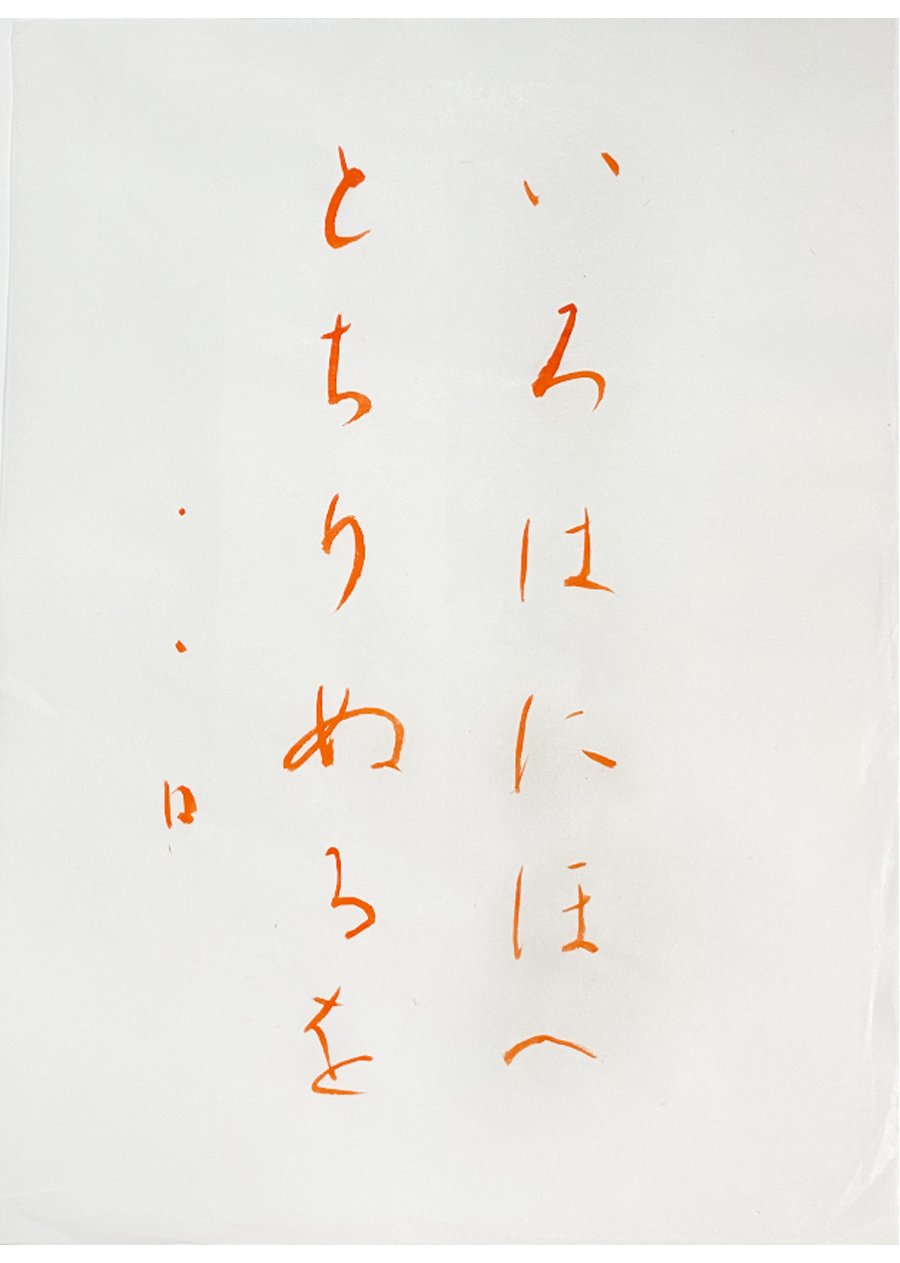 いろはにほへ
とちりぬるを
・・日